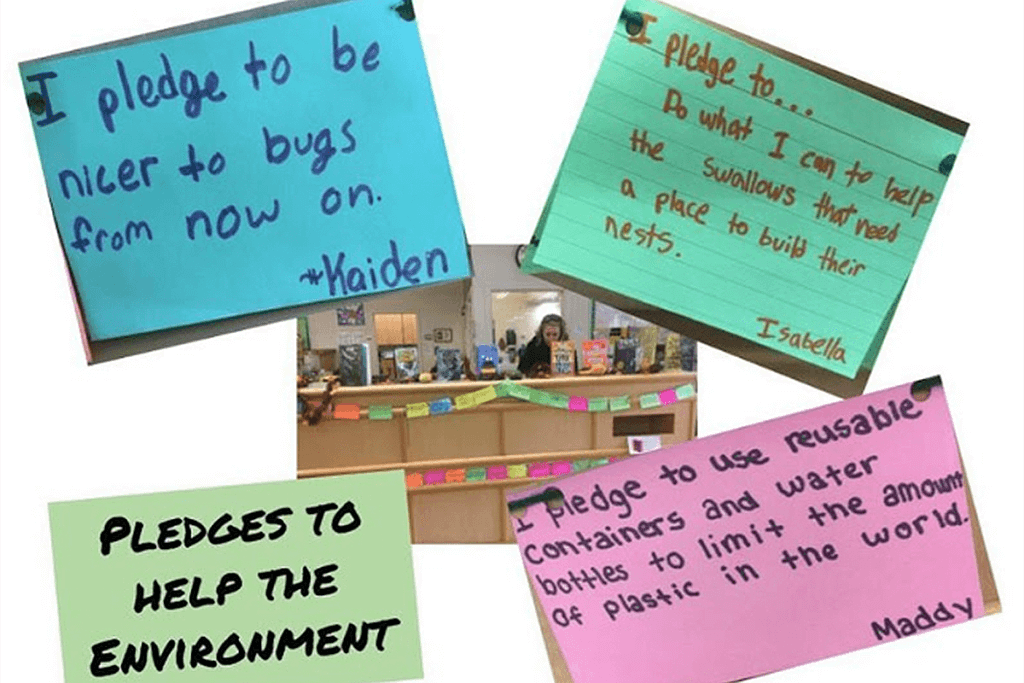 I pledge to be
nicer to bugs
from now on.
~Kaiden
I pledge to...
Do what I can to help
the swallows that need
a place to build their
nests.
Isabella
I pledge to use reusable
containers and water
bottles to limit the amount
of plastic in the world.
Maddy
PLEDGES TO
HELP THE
ENVIRONMENT